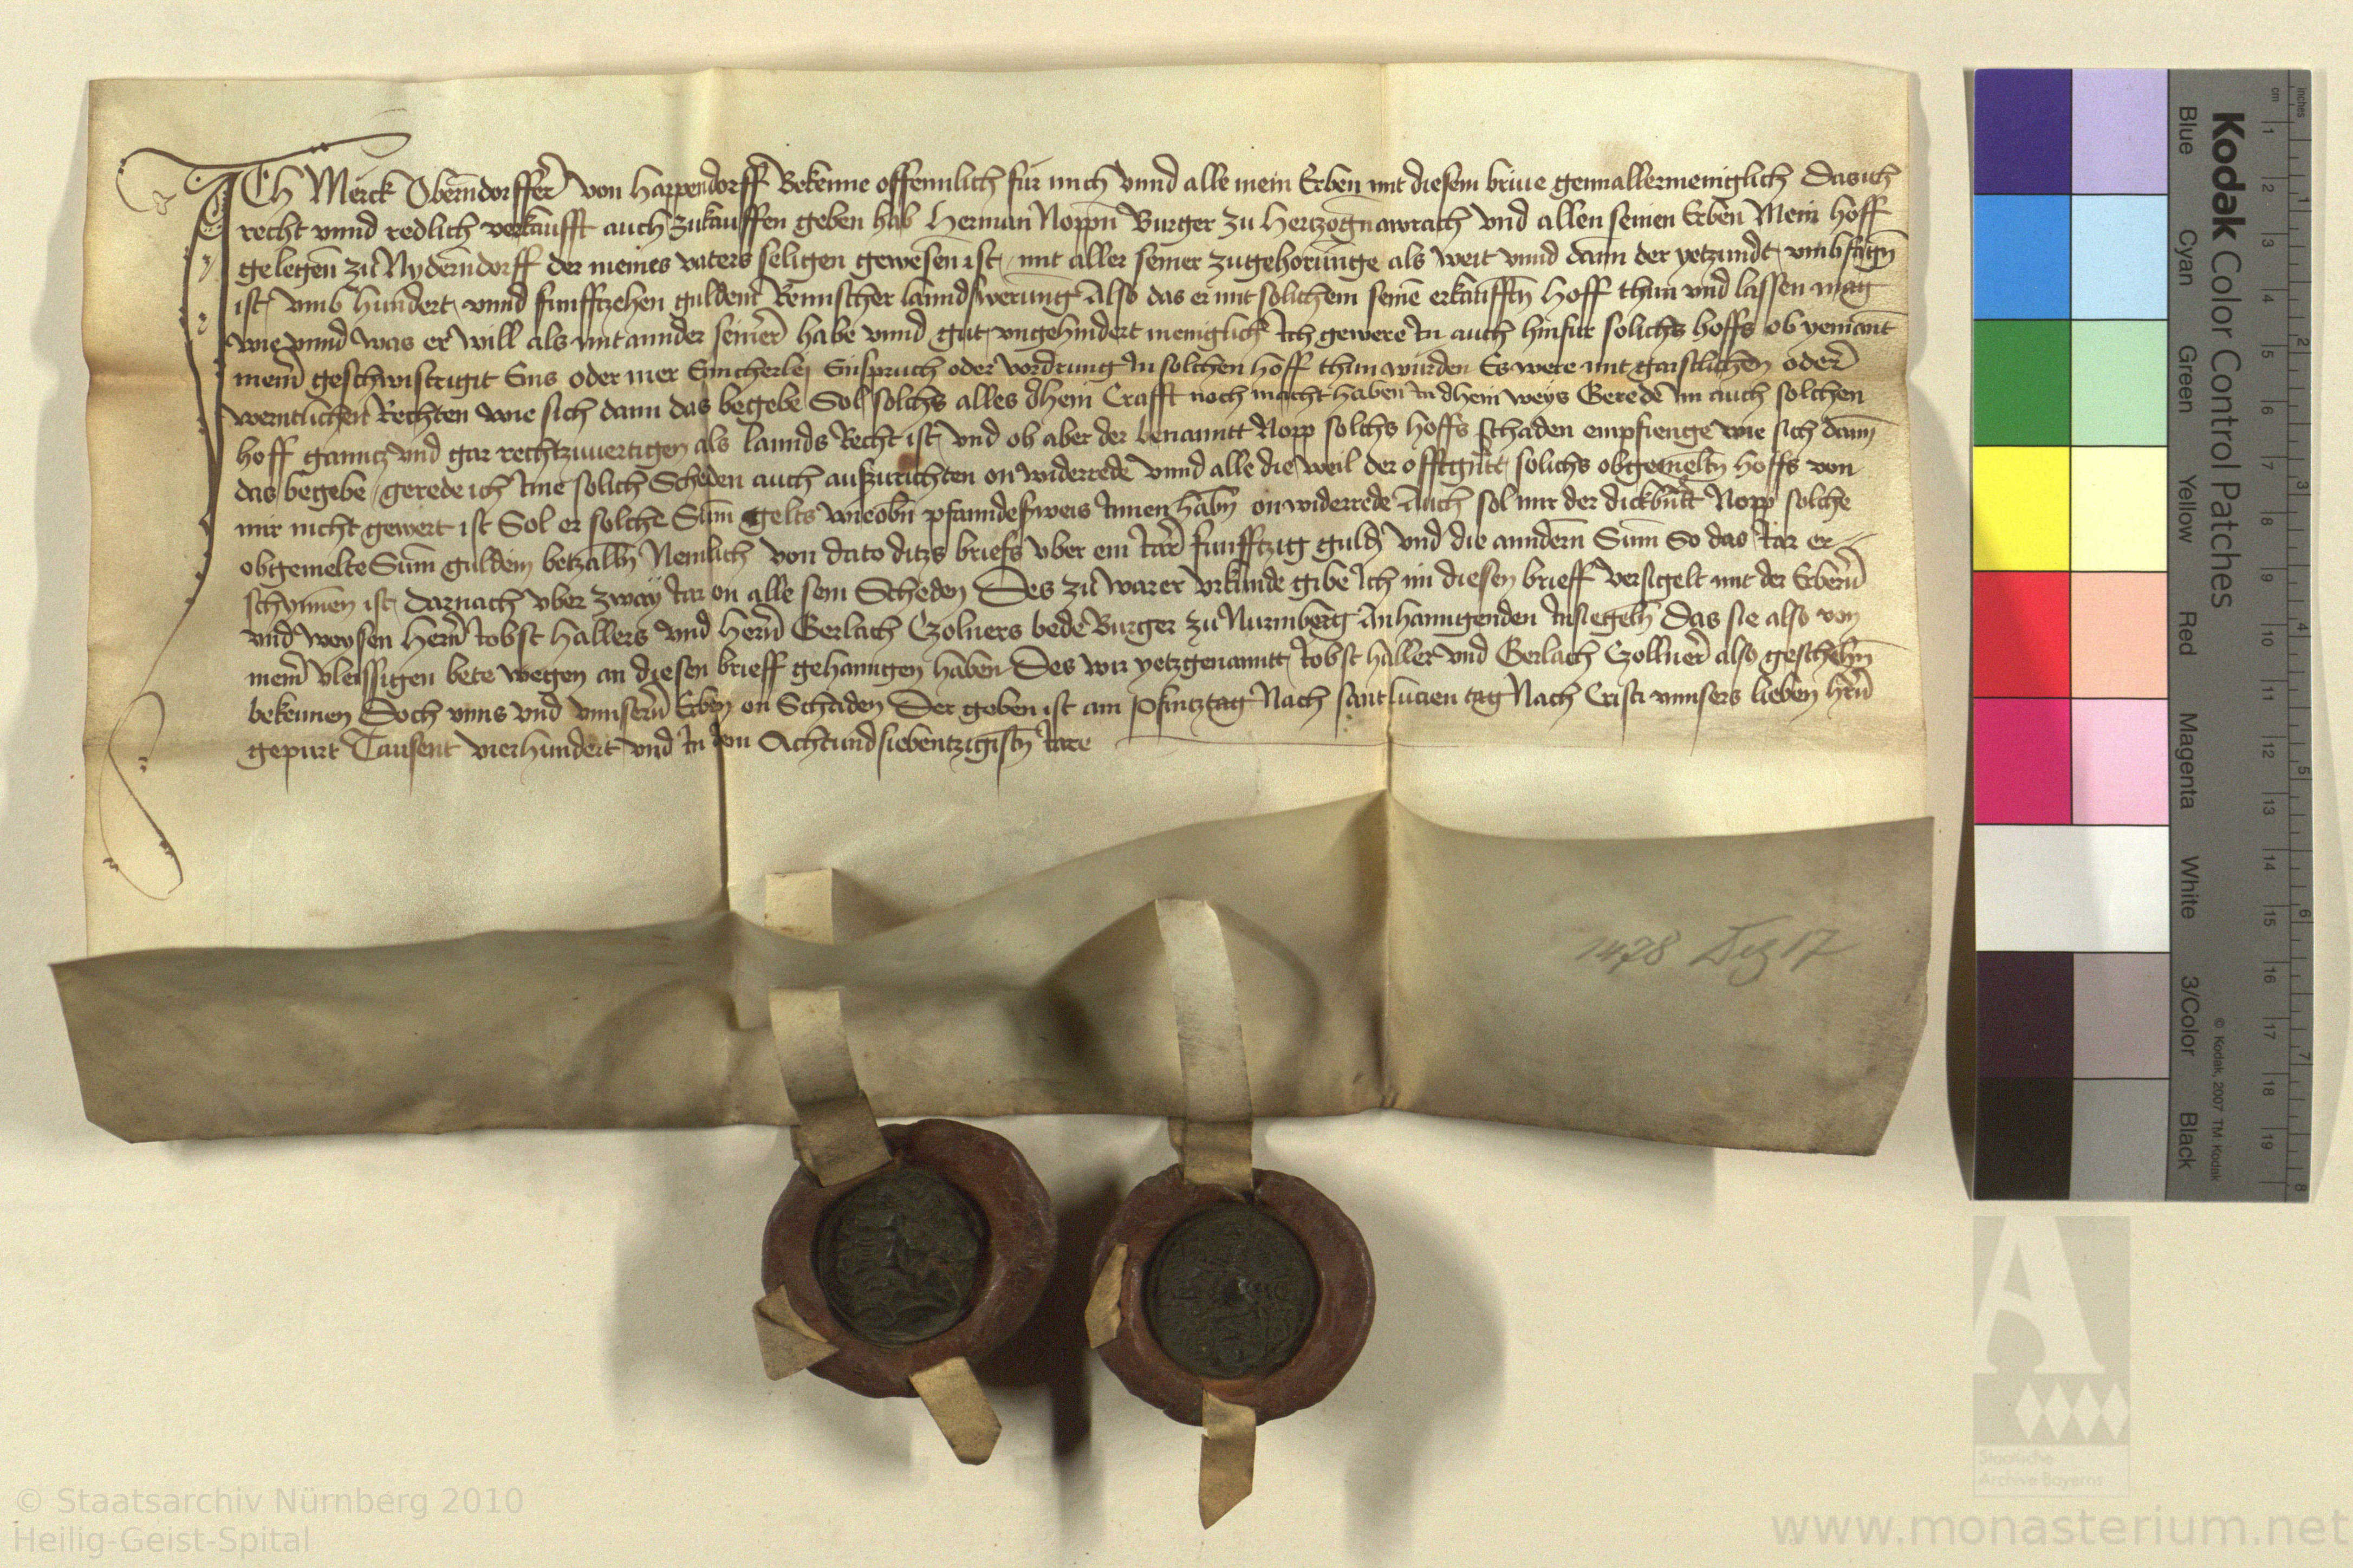 ICh Merck Oberndorffer von Happendorff Bekenne offennlich fur mich vnnd alle mein Erben mit diesem briue gennallermeniglich Das ich
recht vnnd redlich verkaufft auch zukauffen geben hab Herman Noppn Burger zu Hertzognawrach vnd allen seinen Erben Mein Hoff
gelegen zu Nyderndorff der meines vaters seligen gewesen ist mit aller seiner zugehorunge als weit vnnd dann der yetzundt vmbfagn
ist vmb hundert vnnd funfftzehen guldenn Reinischer lanndswerung Also das er mit solichem seine erkaufftn Hoff thun vnd lassen mag
wie vnnd was er will als mit annder seiner habe vnnd gut vngehindert meniglich Ich gewere In auch hinfur solichs hoffs ob yemant
meinr geschwistrigit Eins oder mer Einicherlei Einspruch oder vordrung In solchen hoff thun wurden Es were mit gaistlichen oder
werntlichen Rechten wie sich dann das begebe Sol solchs alles dhein Crafft noch macht haben In dhein weys Gerede Im auch solchen
hoff ganntz vnd gar rechtzuuertigen als lannds Recht ist vnd ob aber der benanntt Nopp solchs hoffs schaden empfienge wie sich dann
das begebe gerede ich Ime solich Scheden auch aufzurichten on widerrede vnnd alle die weil der offtgntt solichs obgemeltn hoffs von
mir nicht gewert ist Sol er solche Sum gelts wieobn pfanndesweis Innen habn on widerrede Auch sol mir der dickbntt Nopp solche
obgemelte Sum guldein betzalln Nemlich von dato ditzs briefs vber ein Iare funfftzig guld vnd die anndern Sum So das Iar er-
schynnen ist darnach vber zway Iar on alle sein Scheden Des zu warer vrkunde gibe Ich im diesen brieff versigelt mit der Erbern
vnd weysen Hern Iobst Hallers vnd Hern Gerlach Czolners bede Burger zu Nurmberg Anhanngenden Insiegeln Das sie also von
meinr vleissigen bete wegen an diesen brieff gehanngen haben Des wir yetzgenanntt Iobst haller vnd Gerlach Czollner also geschehn
bekennen Doch vnns vnd vnnsern Erben on Schaden Der geben ist am Pfintztag Nach sant lucien tag Nach Cristi vnnsers lieben hrn
gepurt Tausent vierhundert vnd In dem Achtundsiebentzigistn Iare
1478 Dez 17
Kodak Color Control Patches
Blue Cyan Green Yellow Red Magenta White 3/Color Black
© Kodak, 2007 TM: Kodak
cm 1 2 3 4 5 6 7 8 9 10 11 12 13 14 15 16 17 18 19
inches 1 2 3 4 5 6 7 8
A
Staatliche
Archive Bayerns
© Staatsarchiv Nürnberg 2010
Heilig-Geist-Spital
www.monasterium.net